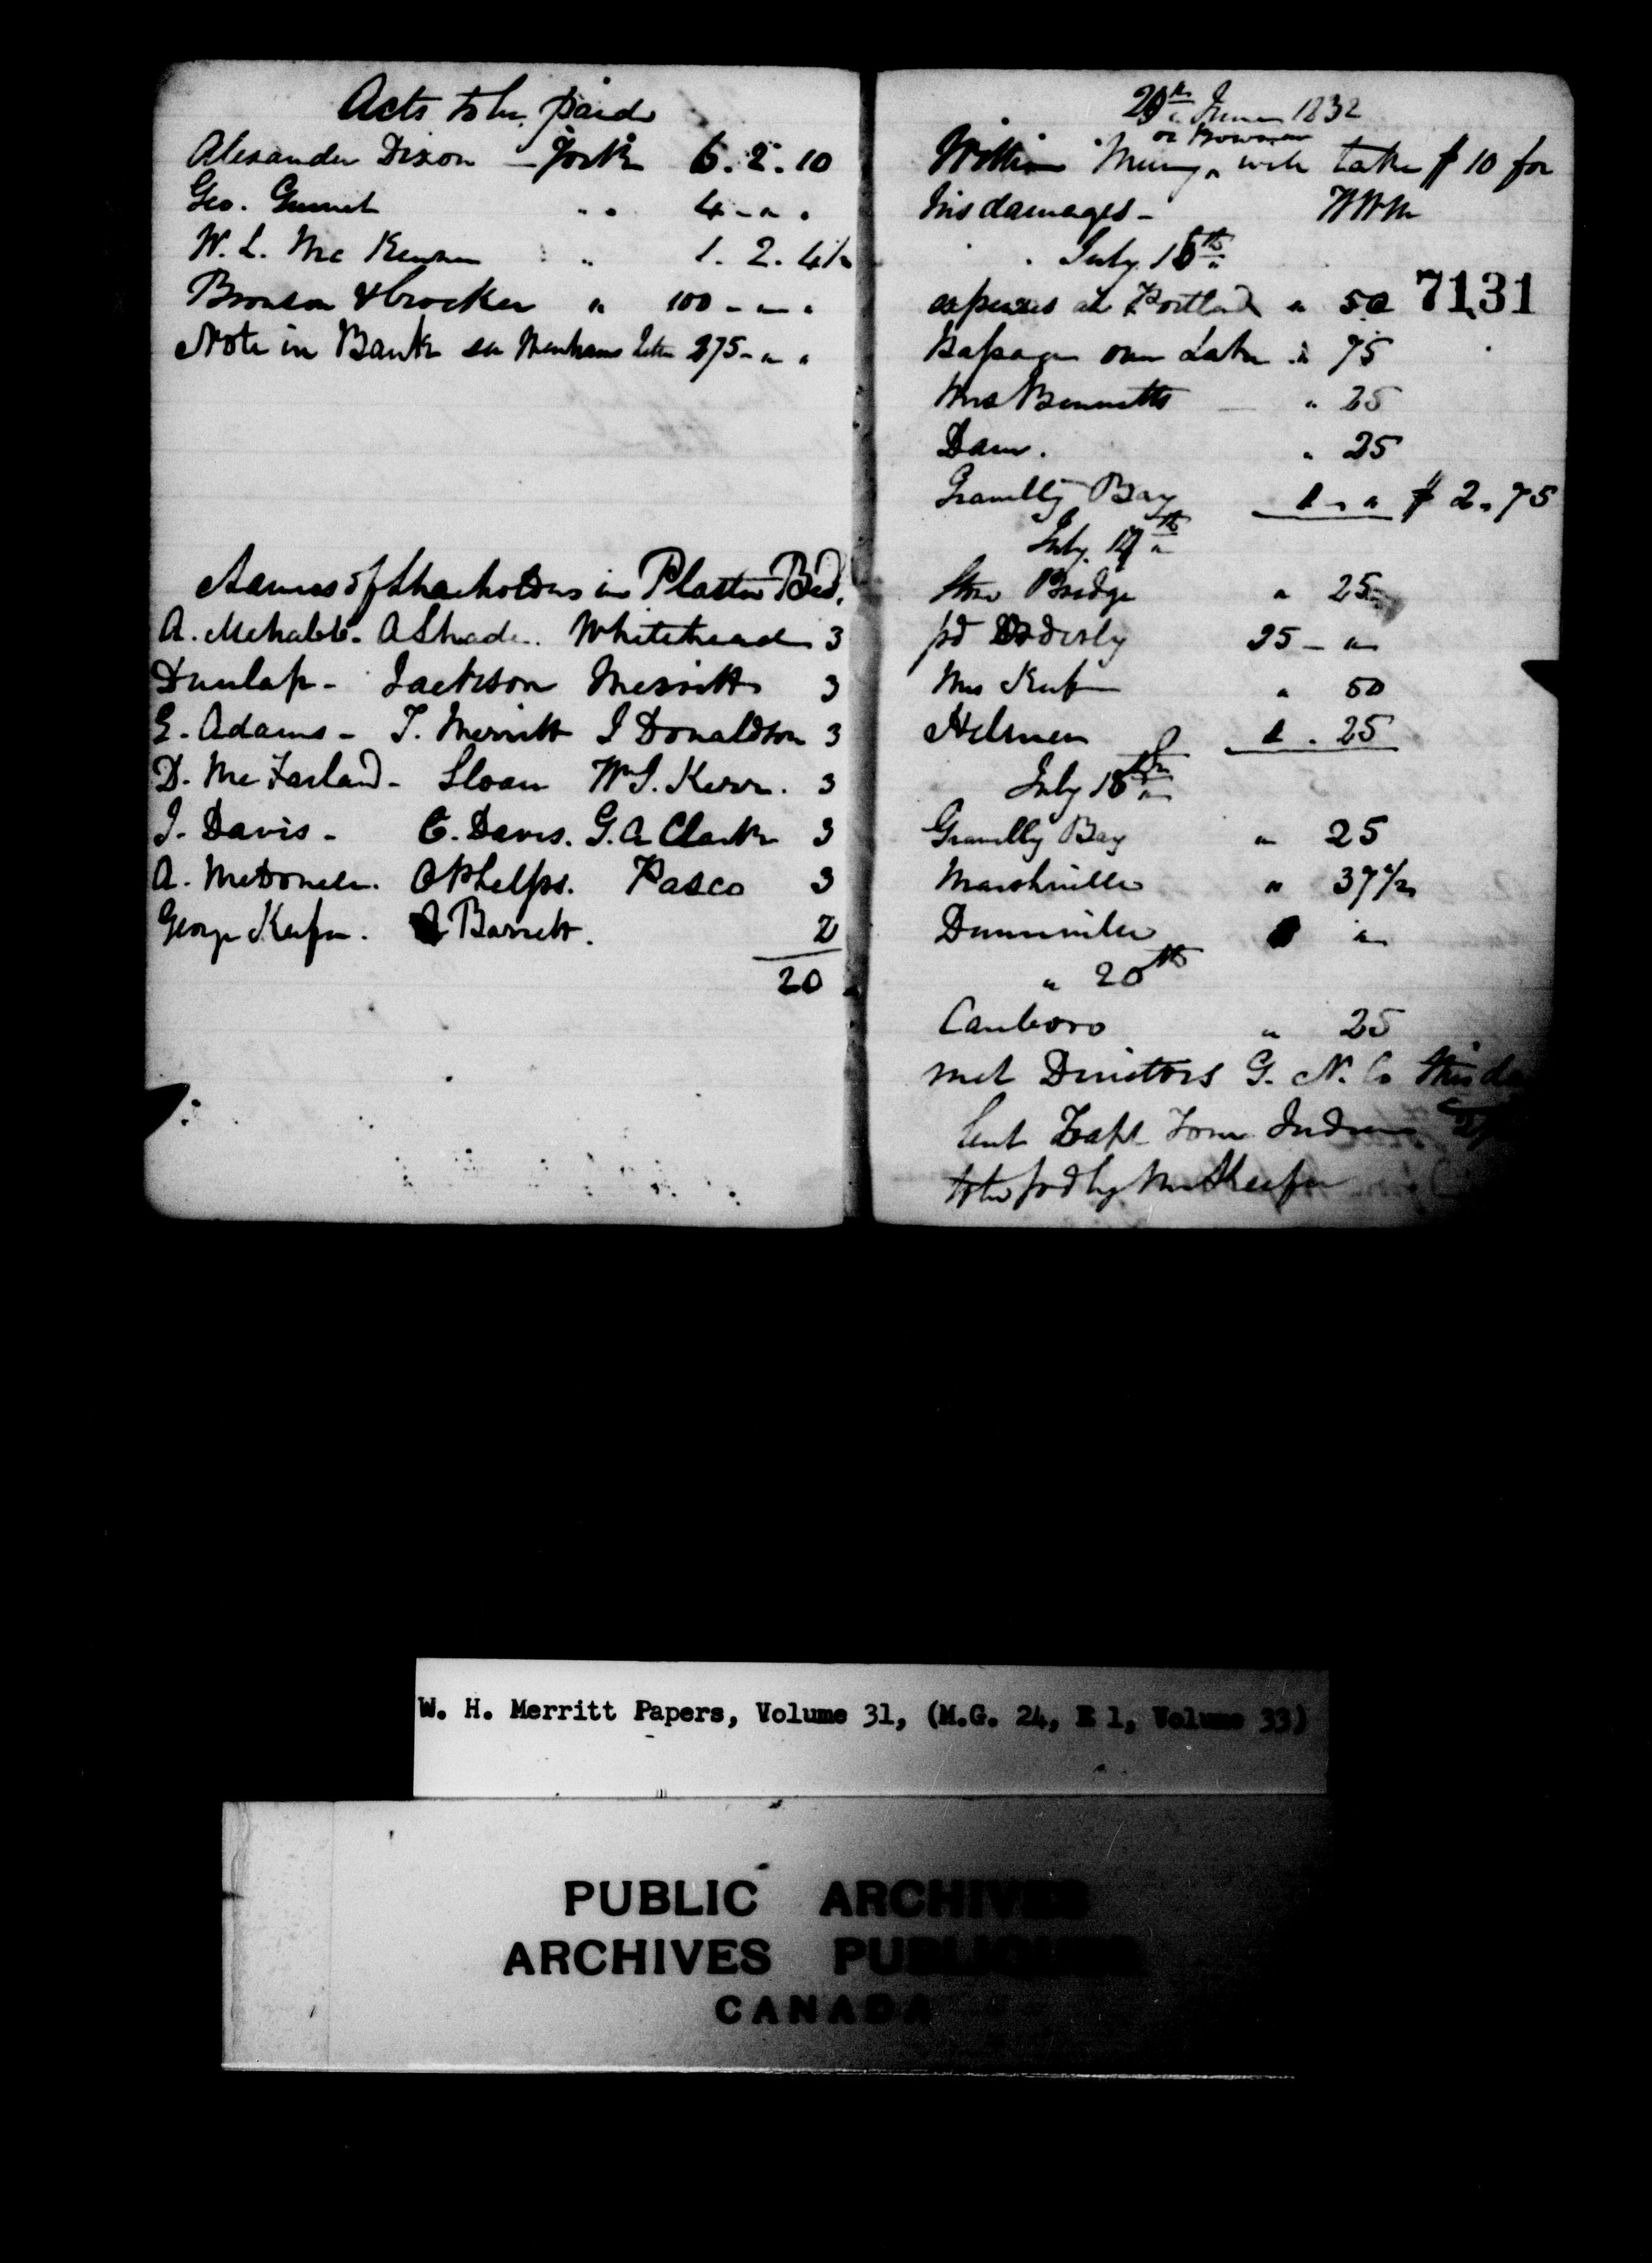 Acts to be paid
Alexander Dixon - York 6. 2. 10
Geo. " " 4 - " "
W. L. Mc " 1. 2. 4½
Bronson & Crocker " 100 - " "
Note in Bank see Letter 275 - " "
Names of Shareholders in Plaster Bed.
A. A Shade. Whitehead 3
Dunlap - Jackson Merritt 3
E. Adams - T. Merritt I Donaldson 3
D. Mc Farland - Sloan Wm J. Kerr. 3
I. Davis - C. Davis. G. A Clark 3
A. McDonell. O Phelps. Pasco 3
George Keefer. Barrett. 2
20
June 1832
or Bowman
will take $ 10 for
his damages - WHM
July
7131
expenses at Portland " 50
Passage over Lake " 75
Mrs Bennetts " 25
Dam. " 25
Gravelly Bay 1 - " $ 2.75
July
Stone Bridge " 25
pd 25 - "
Mrs Keefer " 50
1. 25
July 18th
Gravelly Bay " 25
Marshville " 37½
Dunnville "
" 20th
Canboro " 25
met Directors G. R. Co this
Capt
to be pd by Mr Keefer
W. H. Merritt Papers, Volume 31, (M.G. 24, E 1, Volume 33)
PUBLIC ARCHIVES
ARCHIVES PUBLIQUES
CANADA